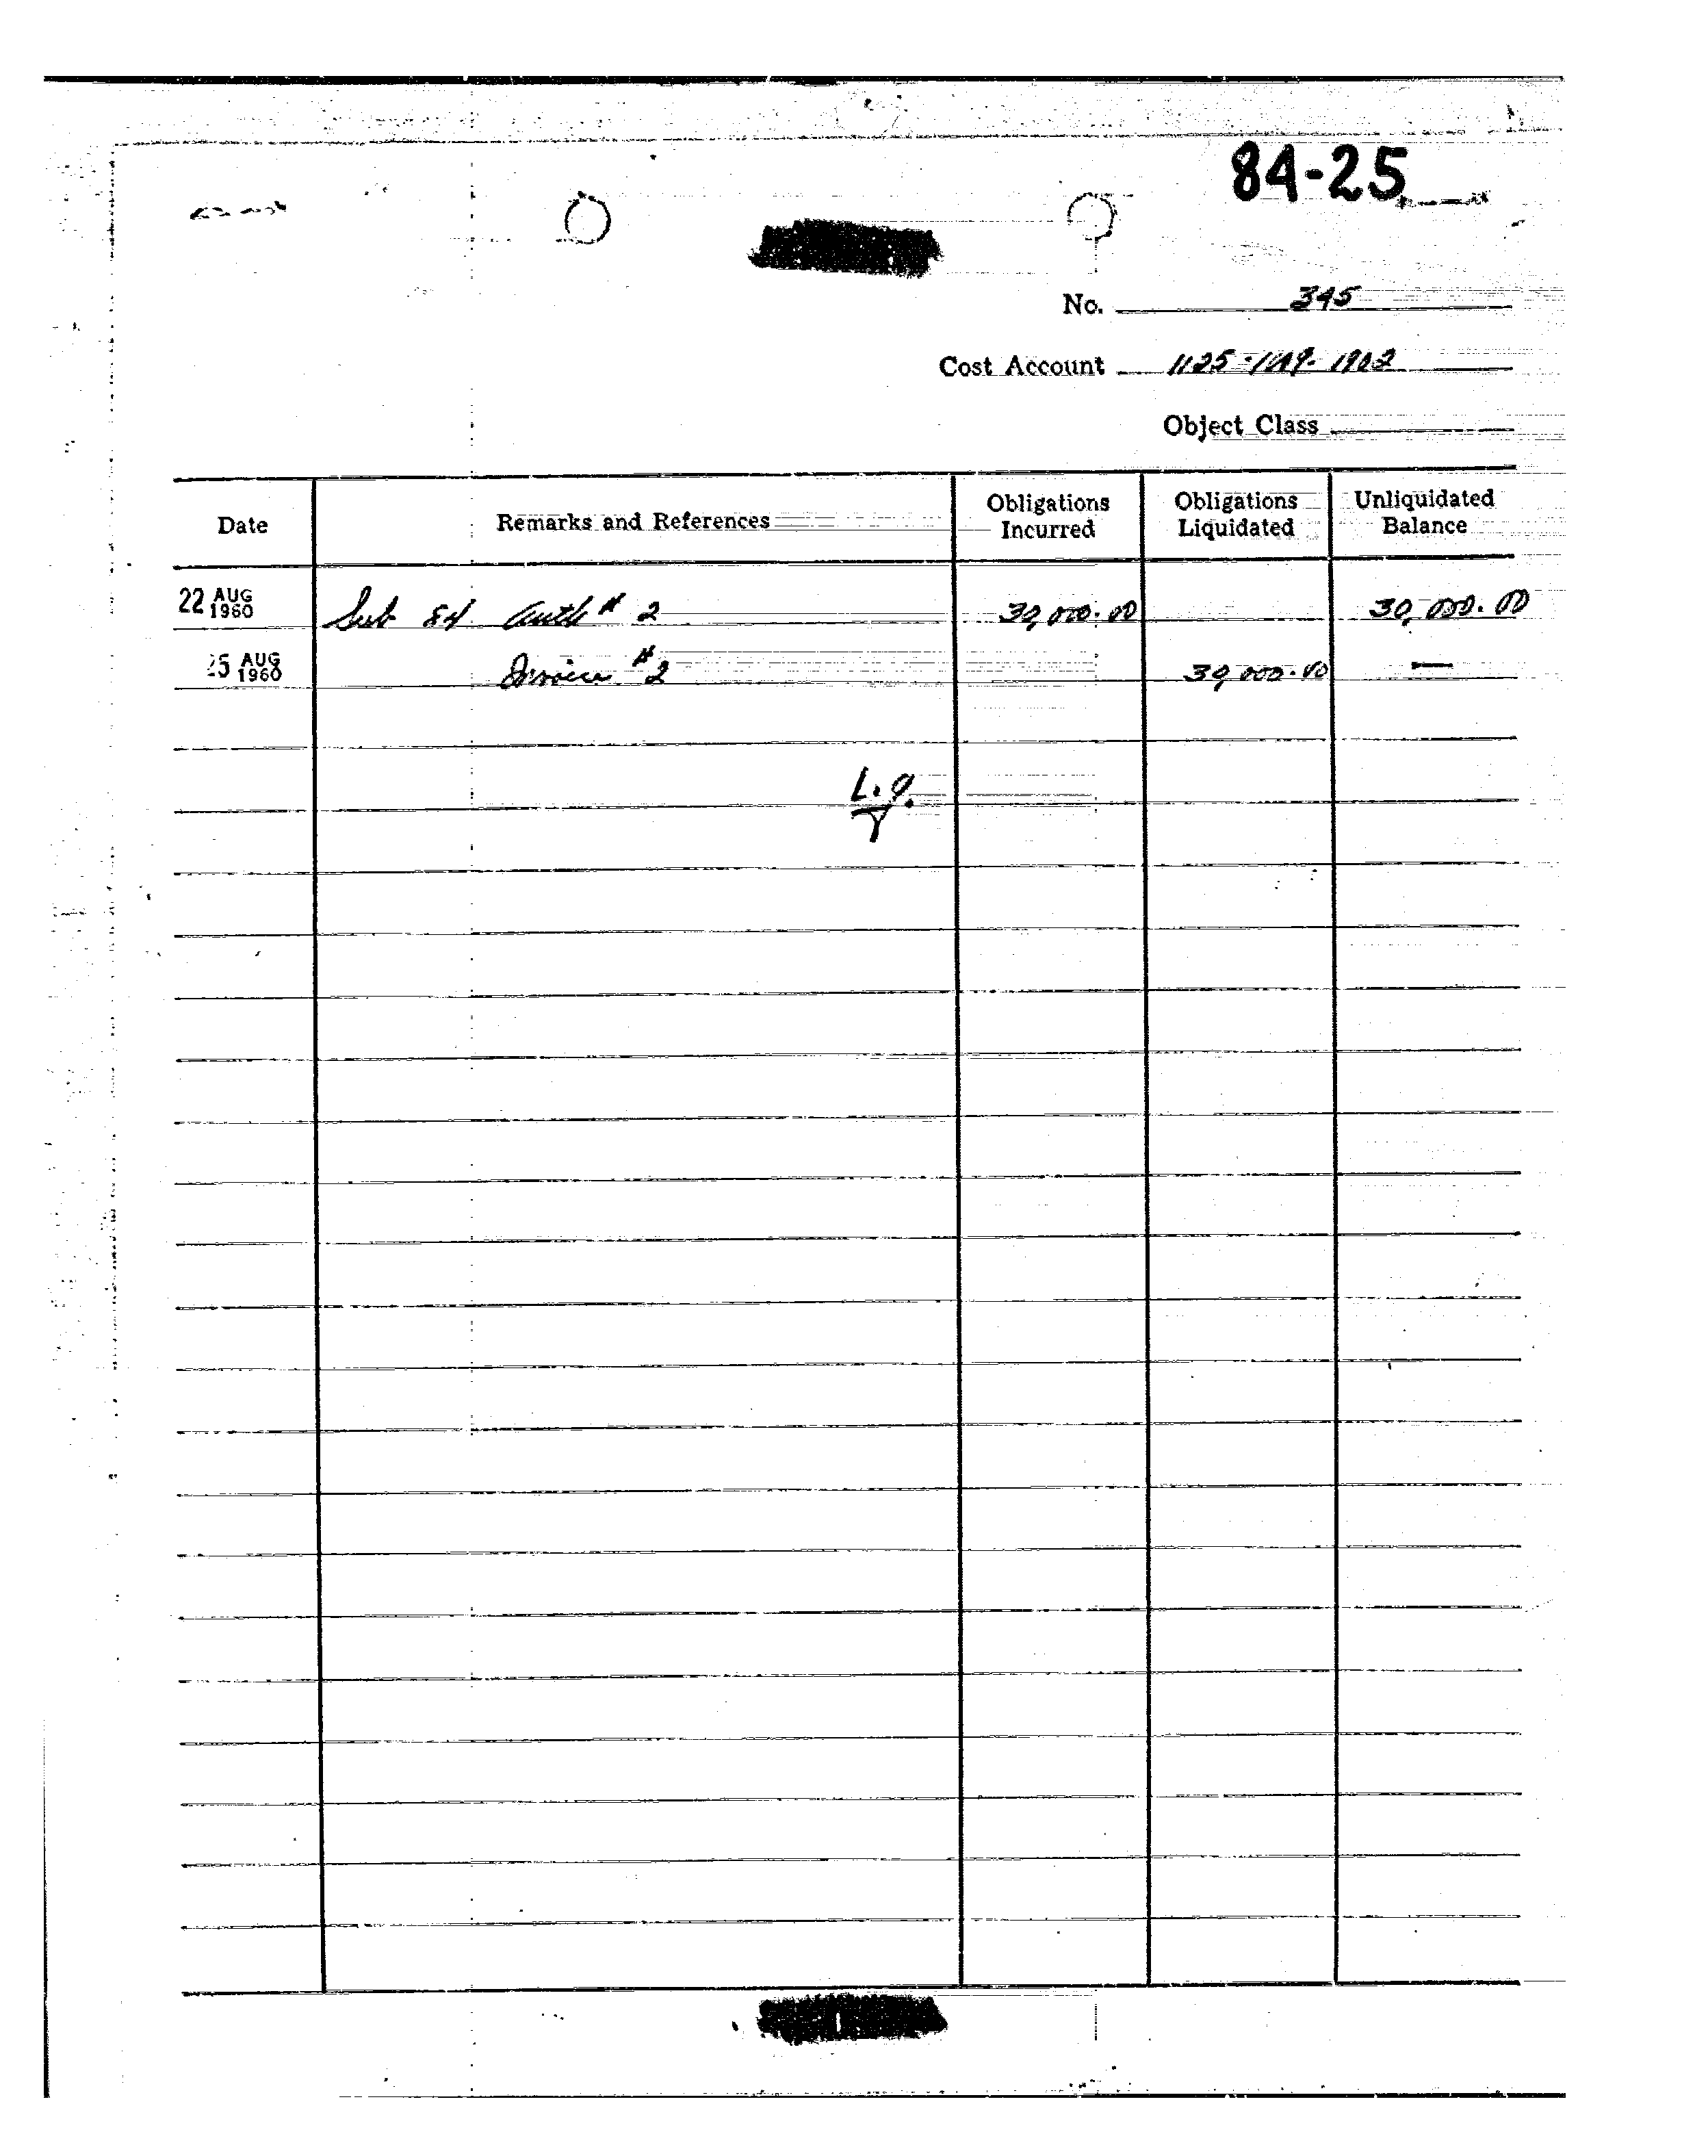 84-25
No. 345
Cost Account 1125-1009-1902
Object Class
Date Remarks and References Obligations Incurred Obligations Liquidated Unliquidated Balance
22 AUG 1960 Sub 84 Auth # 2 30,000.00 30,000.00
25 AUG 1960 Invoice # 2 30,000.00 —